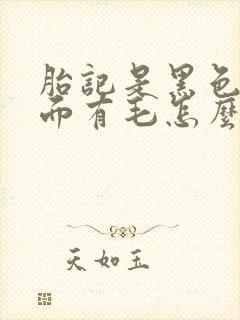 胎記是黑色
而有毛怎麼
天如玉